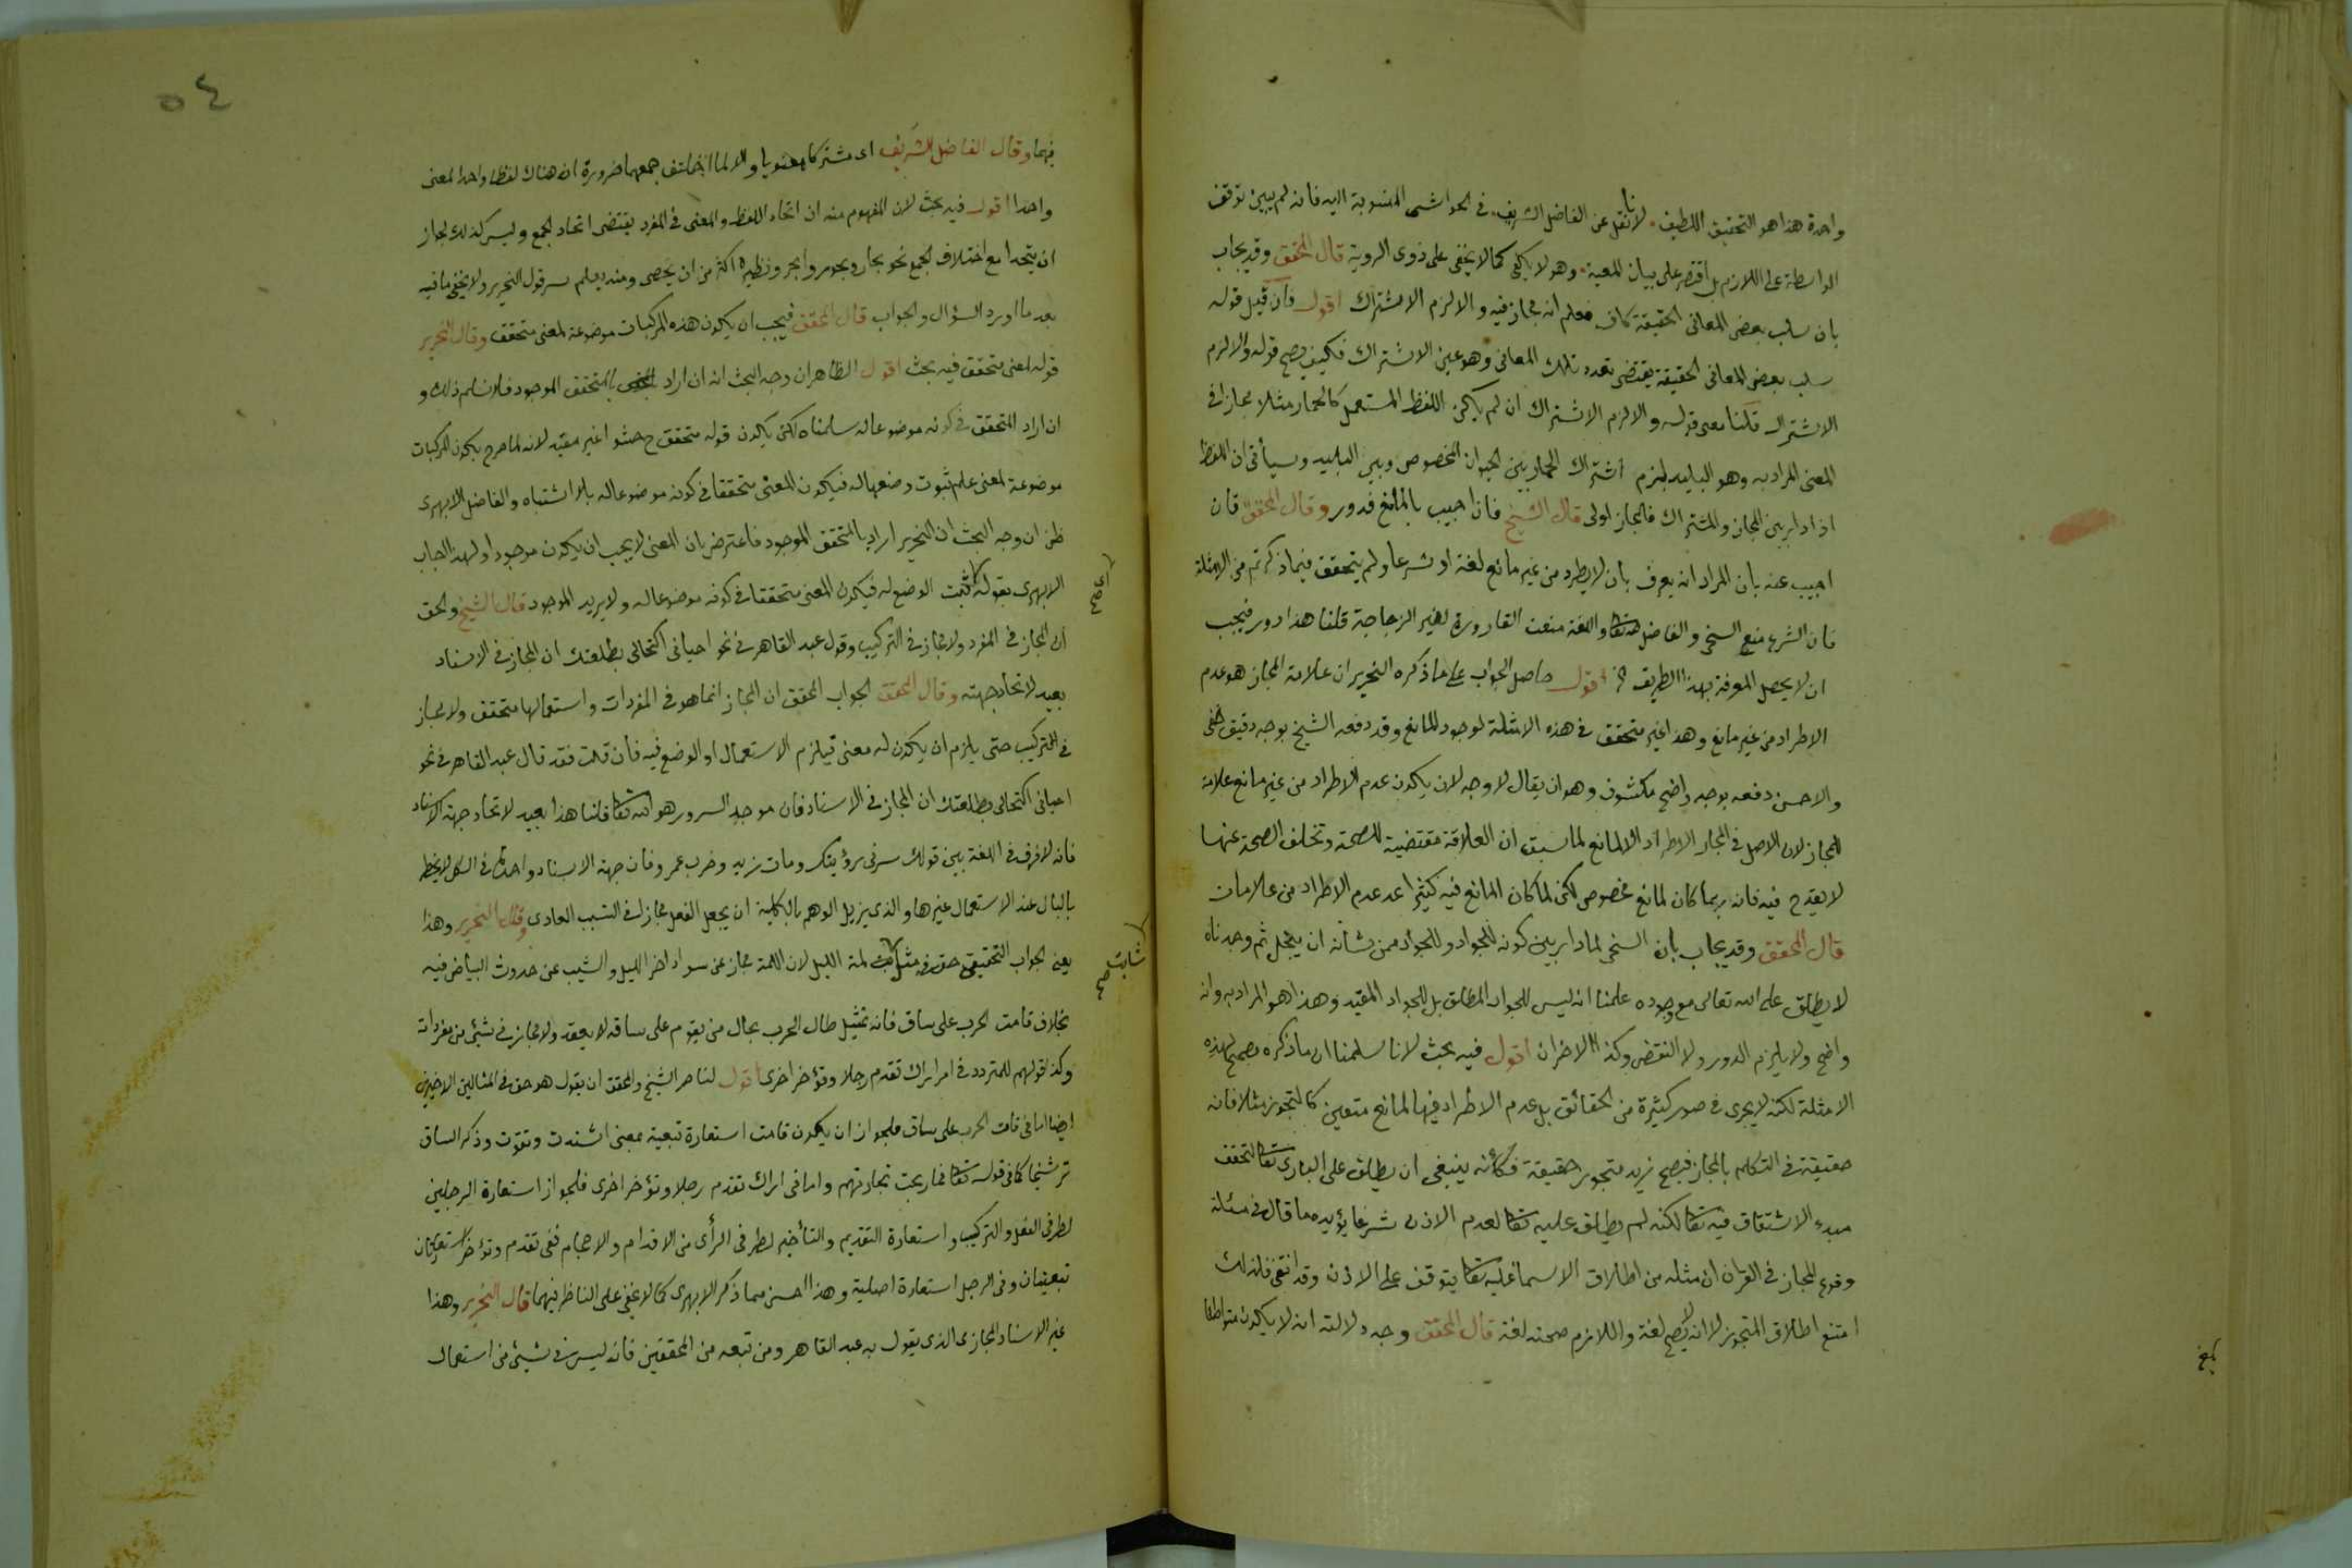 واحدة هذا هو التحقيق اللطيف لا نا نقل عن الفاضل الشريف في الحواشى المنسوبة اليه فانه لم يبين توقف
الواسطة على اللازم بل اقتصر على بيان المعية وهو لا يكفى كما لا يخفى على ذوى الروية قال المحقق وقد يجاب
بان سلب بعض المعانى الحقيقة كاف فعلم انه مجاز فيه والا لزم الاشتراك اقول فان قيل قوله
سلب بعض المعانى الحقيقة يقتضى تعدد تلك المعانى وهو عين الاشتراك فكيف يصح قوله والا لزم
الاشتراك قلنا معنى قوله والا لزم الاشتراك ان لم يكن اللفظ المستعمل كالحمار مثلا مجازا فى
المعنى المراد به وهو البليد يلزم اشتراك الحمار بين الحيوان المخصوص وبين البليد وسيأتى ان اللفظ
اذا دار بين المجاز والمشتراك فالمجاز اولى قال الشيخ فان اجيب بالمانع فدور وقال المحقق فان
اجيب عنه بان المراد انه يعرف بان لا يطرد من غير مانع لغة او شرعا ولم يتحقق فيما ذكرتم من الامثلة
فان الشرع منع السخى والفاضل لله تعا واللغة منعت القارورة لغير الزجاجة قلنا هذا دور فيجب
ان لا يحصل المعرفة بهذا الطريق الخ اقول حاصل الجواب على ما ذكره النحرير ان علامة المجاز هو عدم
الاطراد من غير مانع وهذا غير متحقق فى هذه الامثلة لوجود المانع وقد دفعه الشيخ بوجه دقيق خفى
والاحسن دفعه بوجه واضح مكشوف وهو ان يقال لا وجه لان يكون عدم الاطراد من غير مانع علامة
للمجاز لان الاصل فى المجاز الاطراد الا لمانع لما سبق ان العلاقة مقتضية للصحة وتخلف الصحة عنها
لا يقدح فيه فانه ربما كان لمانع مخصوص لكن لما كان المانع فيه كثيرا عد عدم الاطراد من علامات
قال المحقق وقد يجاب بان السخى لما دار بين كونه للجواد وللجواد ممن شانه ان يبخل ثم وجدناه
لا يطلق على الله تعالى مع وجوده علمنا انه ليس للجواد المطلق بل للجواد المقيد وهذا هو المراد به وانه
واضح ولا يلزم الدور ولا النقض وكذا الاخران اقول فيه بحث لانا سلمنا ان ما ذكره يصح لهذه
الامثلة لكنه لا يجرى فى صور كثيرة من الحقائق بل عدم الاطراد فيها لمانع متعين كالتجوز مثلا فانه
حقيقة فى التكلم بالمجاز فيصح زيد متجوز حقيقة فكانه ينبغى ان يطلق على البارى تعا لتحقق
مبدء الاشتقاق فيه تعا لكنه لم يطلق عليه تعا لعدم الاذن شرعا يؤيده ما قال فى مسئلة
وقوع المجاز فى القران ان مثله من اطلاق الاسماء عليه تعا يتوقف على الاذن وقد انتفى فلذلك
امتنع اطلاق المتجوز لا انه لا يصح لغة واللازم صحته لغة قال المحقق وجه دلالته انه لا يكون متواطئا
بلغ
٥٤
فيهما وقال الفاضل الشريف اى مشتركا معنويا والا لما اختلف جمعهما ضرورة ان هناك لفظا واحدا لمعنى
واحدا اقول فيه بحث لان المفهوم منه ان اتحاد اللفظ والمعنى فى المفرد يقتضى اتحاد الجمع وليس كذلك لجواز
ان يتحدا مع اختلاف الجمع نحو بحار وبحور وابحر ونظيره اكثر من ان يحصى ومنه يعلم سر قول النحرير ولا يخفى ما فيه
بعد ما اورد السؤال والجواب قال المحقق فيجب ان يكون هذه المركبات موضوعة لمعنى متحقق وقال النحرير
قوله لمعنى متحقق فيه بحث اقول الظاهر ان وجه البحث انه ان اراد بالمتحقق الموجود فلا نسلم ذلك و
ان اراد المتحقق فى كونه موضوعا له سلمناه لكن يكون قوله متحقق ح حشوا غير مقيد لانه لما صرح بكون المركبات
موضوعة لمعنى علم ثبوت وضعها له فيكون المعنى متحققا فى كونه موضوعا له بلا اشتباه والفاضل الابهرى
ظن ان وجه البحث ان النحرير اراد بالمتحقق الموجود فاعترض بان المعنى لا يجب ان يكون موجودا ولهذا اجاب
الابهرى بقوله ثبت الوضع له فيكون المعنى متحققا فى كونه موضوعا له ولا يريد الموجود قال الشيخ والحق
اى صح
ان المجاز فى المفرد ولا مجاز فى التركيب وقول عبد القاهر فى نحو احيانى اكتحالى بطلعتك ان المجاز فى الاسناد
بعيد لاتحاد جهته وقال المحقق الجواب المحقق ان المجاز انما هو فى المفردات واستعمالها متحقق ولا مجاز
فى التركيب حتى يلزم ان يكون له معنى فيلزم الاستعمال او الوضع فيه فان قلت فقد قال عبد القاهر فى نحو
احيانى اكتحالى بطلعتك ان المجاز فى الاسناد فان موجد السرور هو الله تعا قلنا هذا بعيد لاتحاد جهة الاسناد
فانه لا فرق فى اللغة بين قولك سرنى رؤيتك ومات زيد وضرب عمرو فان جهة الاسناد واحدة فى الكل لا يخطر
بالبال عند الاستعمال غيرها والذى يزيل الوهم بالكلية ان يجعل الفعل مجازا فى التسبب العادى وقال النحرير وهذا
يعنى الجواب التحقيقى حق فى مثل لمة الليل لان اللمة مجاز عن سواد اخر الليل والشيب عن حدوث البياض فيه
شابت صح
بخلاف قامت الحرب على ساق فانه تمثيل حال الحرب بحال من يقوم على ساقه لا يقعد ولا مجاز فى شيئ من مفردات
وكذا قولهم للمتردد فى امر اراك تقدم رجلا وتؤخر اخرى اقول لناصر الشيخ والمحقق ان يقول هو حق فى المثالين الاخيرين
ايضا اما فى قامت الحرب على ساق فلجواز ان يكون قامت استعارة تبعية بمعنى اشتدت وتقوت وذكر الساق
ترشيحا كما فى قوله تعا فما ربحت تجارتهم واما فى اراك تقدم رجلا وتؤخر اخرى فلجواز استعارة الرجلين
لطرفى الفعل والتركيب واستعارة التقديم والتأخير لطرفى الرأى من الاقدام والاحجام ففى تقدم وتؤخر استعارتان
تبعيتان وفى الرجل استعارة اصلية وهذا احسن مما ذكر الابهرى كما لا يخفى على الناظر فيهما قال النحرير وهذا
غير الاسناد المجازى الذى يقول به عبد القاهر ومن تبعه من المحققين فانه ليس فى شيئ من استعمال